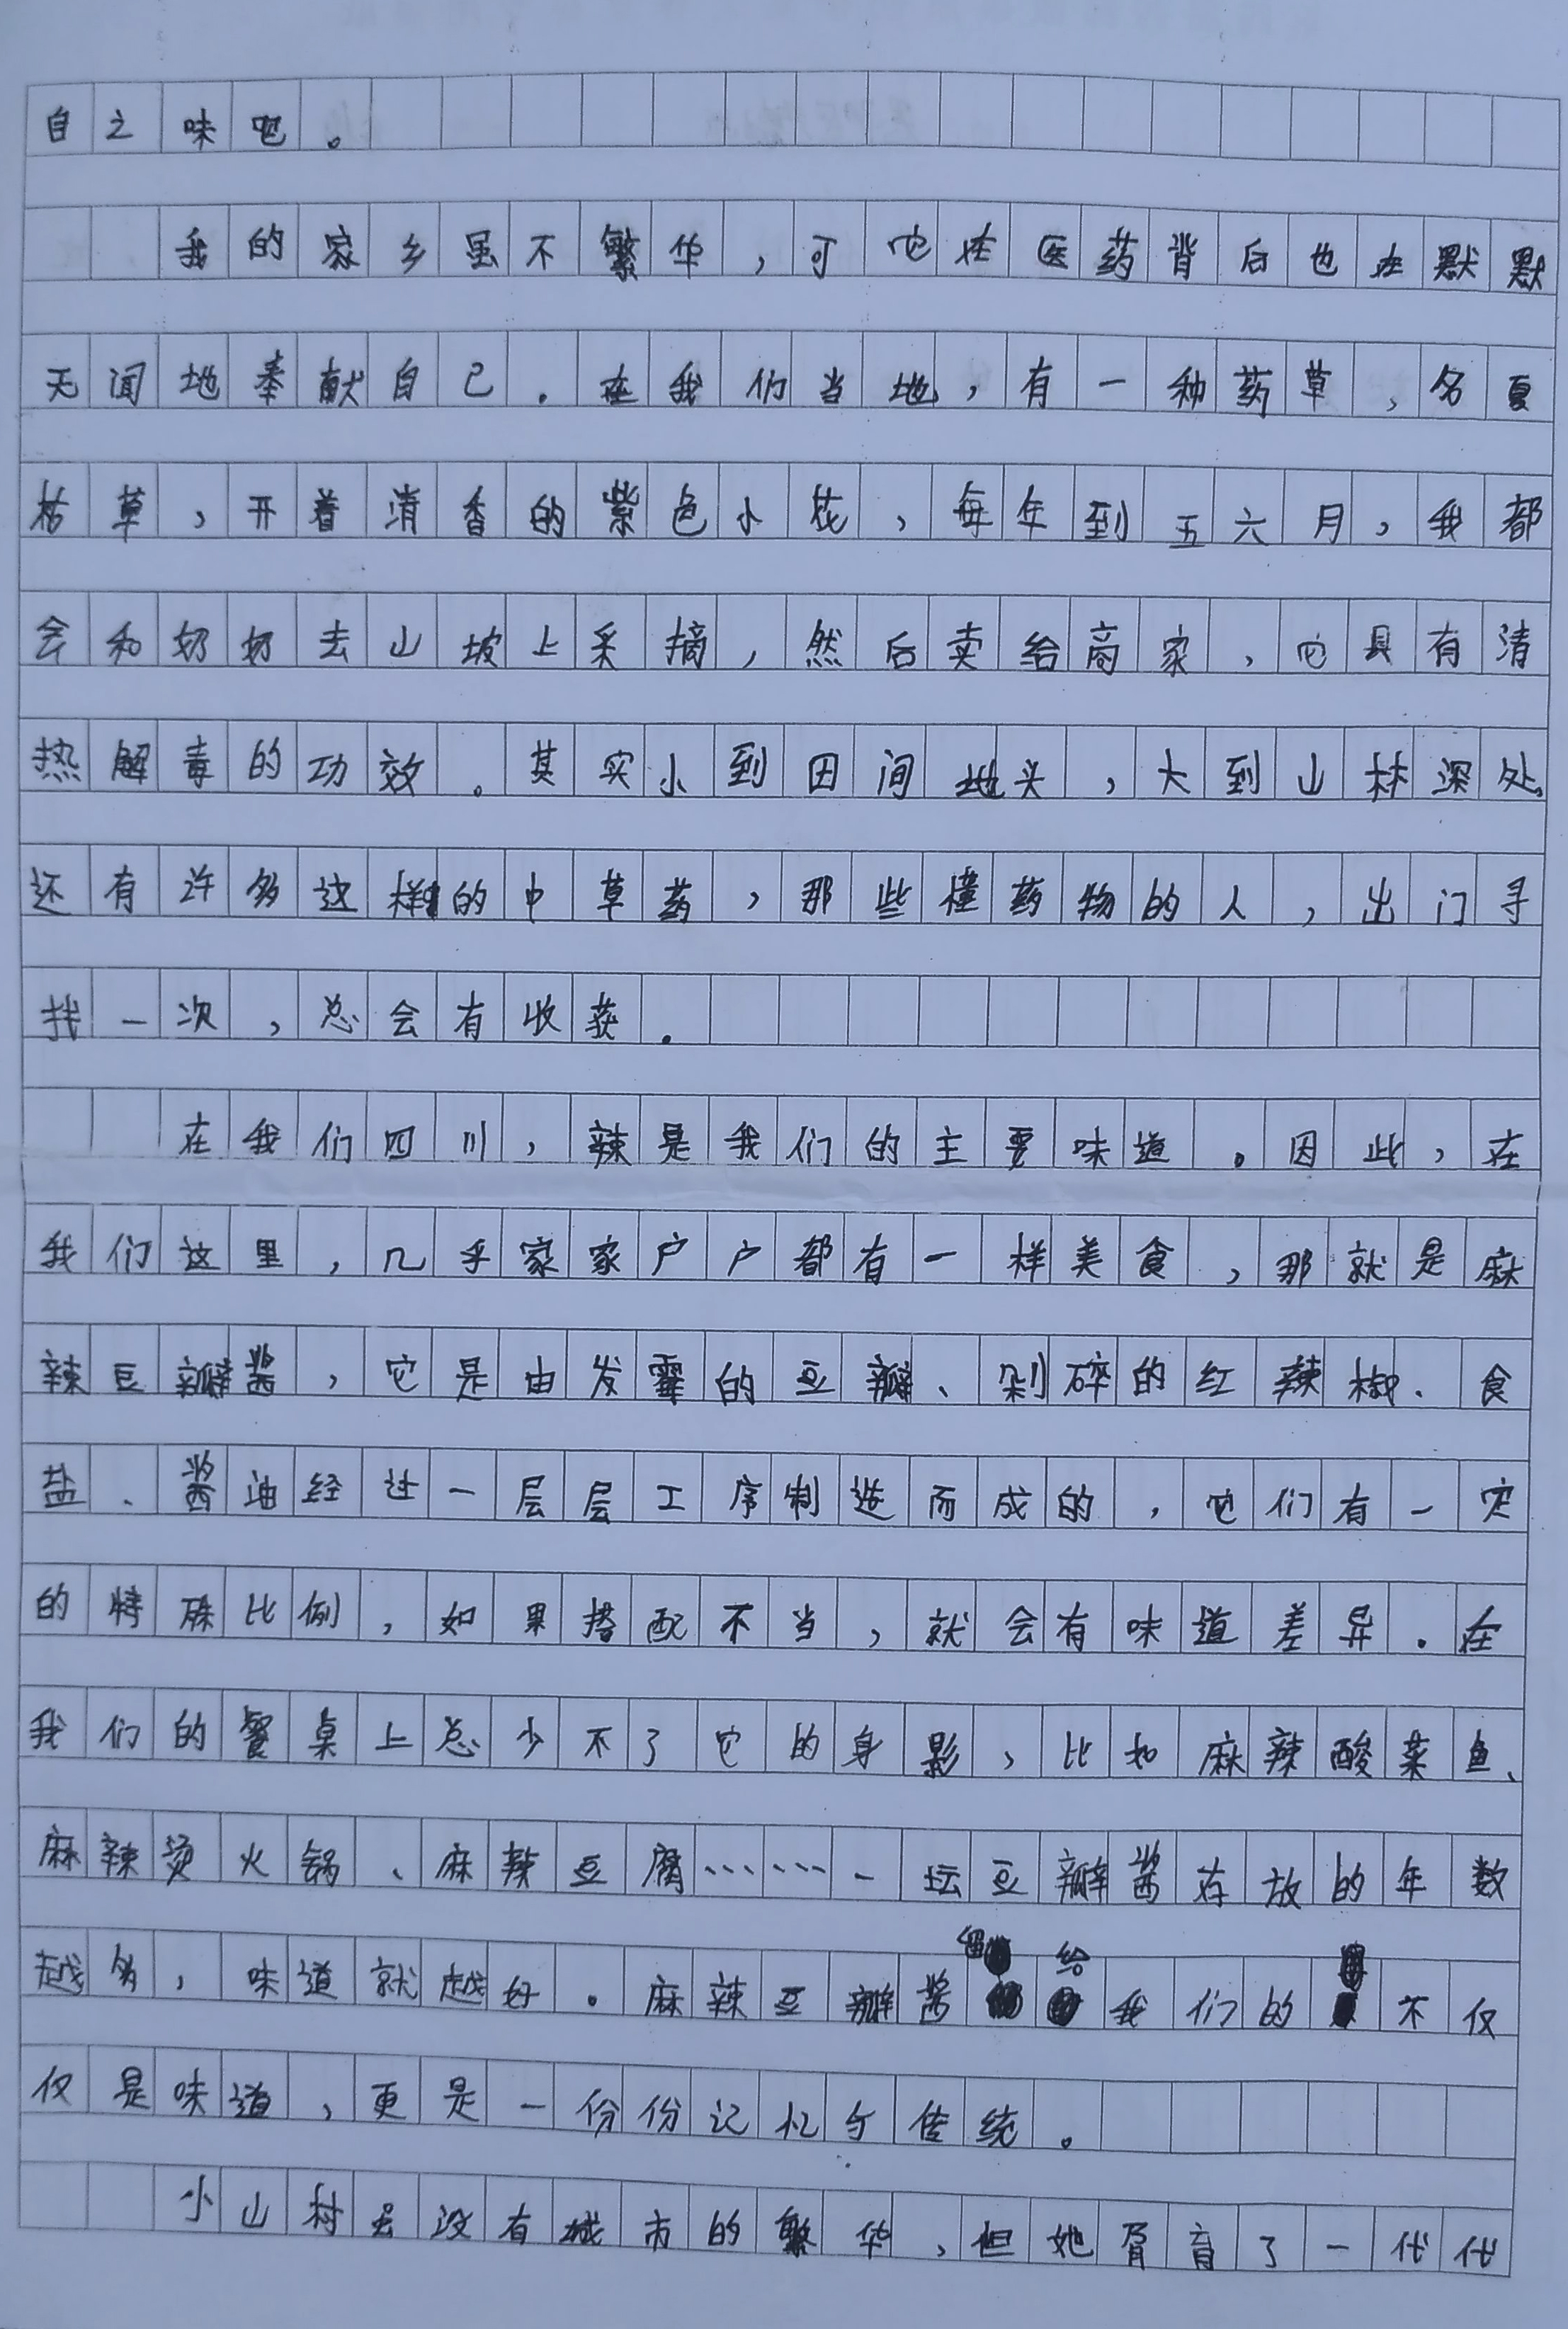 自之味吧。
我的家乡虽不繁华，可它在医药背后也在默默
无闻地奉献自己。在我们当地，有一种药草，名夏
枯草，开着清香的紫色小花，每年到五六月，我都
会和奶奶去山坡上采摘，然后卖给商家，它具有清
热解毒的功效。其实小到田间地头，大到山林深处，
还有许多这样的中草药，那些懂药物的人，出门寻
找一次，总会有收获。
在我们四川，辣是我们的主要味道。因此，在
我们这里，几乎家家户户都有一样美食，那就是麻
辣豆瓣酱，它是由发霉的豆瓣、剁碎的红辣椒、食
盐、酱油经过一层层工序制造而成的，它们有一定
的特殊比例，如果搭配不当，就会有味道差异。在
我们的餐桌上总少不了它的身影，比如麻辣酸菜鱼、
麻辣烫火锅、麻辣豆腐……一坛豆瓣酱存放的年数
越多，味道就越好。麻辣豆瓣酱留给我们的不仅
仅是味道，更是一份份记忆与传统。
小山村虽没有城市的繁华，但她育了一代代